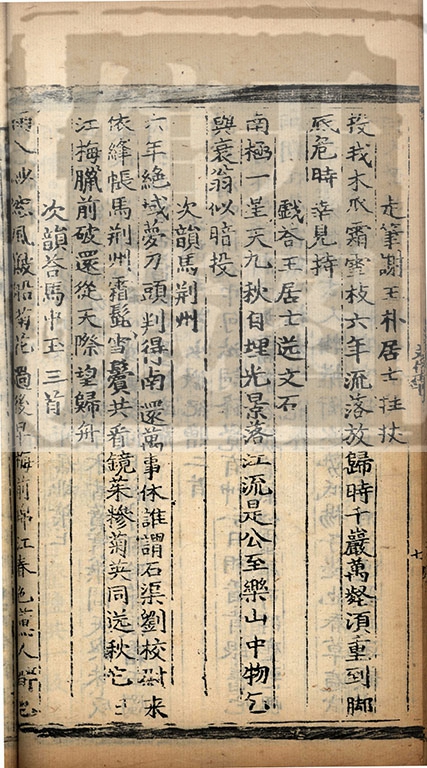 走筆謝王朴居士拄杖
投我木瓜霜雪枝六年流落放歸時千巖萬壑須重到脚
底危時幸見持
戲答王居士送文石
南極一星天九秋自埋光景落江流是公至樂山中物乞
與衰翁似暗投
次韻馬荆州
六年絶域夢刀頭判得南還萬事休誰謂石渠劉校尉来
依絳帳馬荆州霜髭雪鬢共看鏡茱糝菊英同送秋它
江梅臘前破還從天際望歸舟
次韻答馬中玉三首
雨入紗窓風簸船菊花過後早梅前錦江春色
七